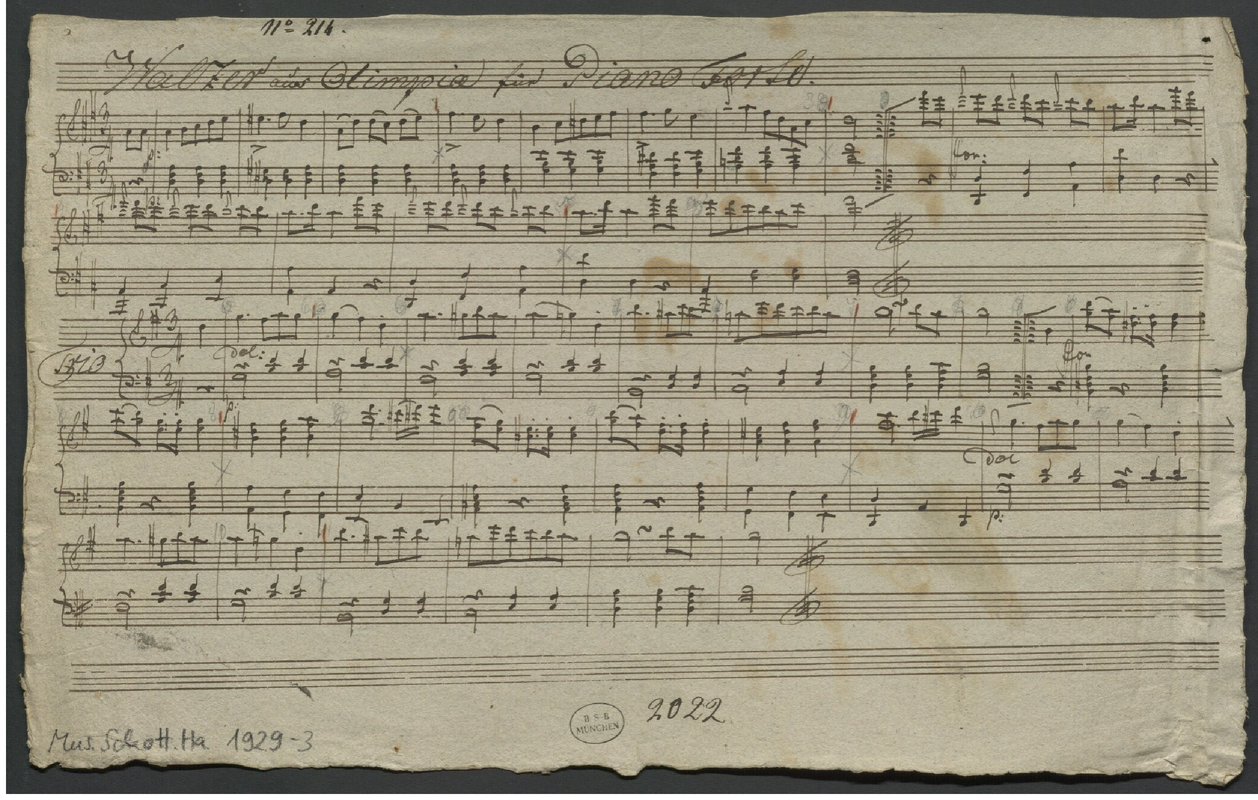 No 214.
Walzer aus Olimpia für Piano Forte.
pp
Cor:
Trio
dol:
Cor
p:
dol
p:
B S B
MÜNCHEN
2022
Mus. Schott. Ha 1929-3